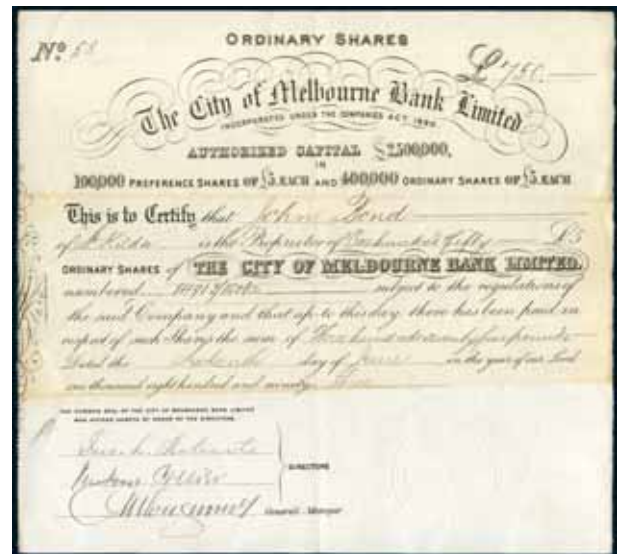 ORDINARY SHARES
No. 58
£750.
The City of Melbourne Bank Limited
INCORPORATED UNDER THE COMPANIES ACT, 1890.
AUTHORIZED CAPITAL £2,500,000,
IN
100,000 PREFERENCE SHARES OF £5. EACH AND 400,000 ORDINARY SHARES OF £5. EACH
This is to Certify that John Bond
of St Kilda is the Proprietor of One hundred & Fifty £5
ORDINARY SHARES of THE CITY OF MELBOURNE BANK LIMITED.
numbered subject to the regulations of
the said Company and that up to this day there has been paid in
respect of such Shares the sum of Three hundred & seventy five pounds
Dated the day of June in the year of our Lord
one thousand eight hundred and ninety
THE COMMON SEAL OF THE CITY OF MELBOURNE BANK LIMITED
WAS AFFIXED HERETO BY ORDER OF THE DIRECTORS.
DIRECTORS
General Manager